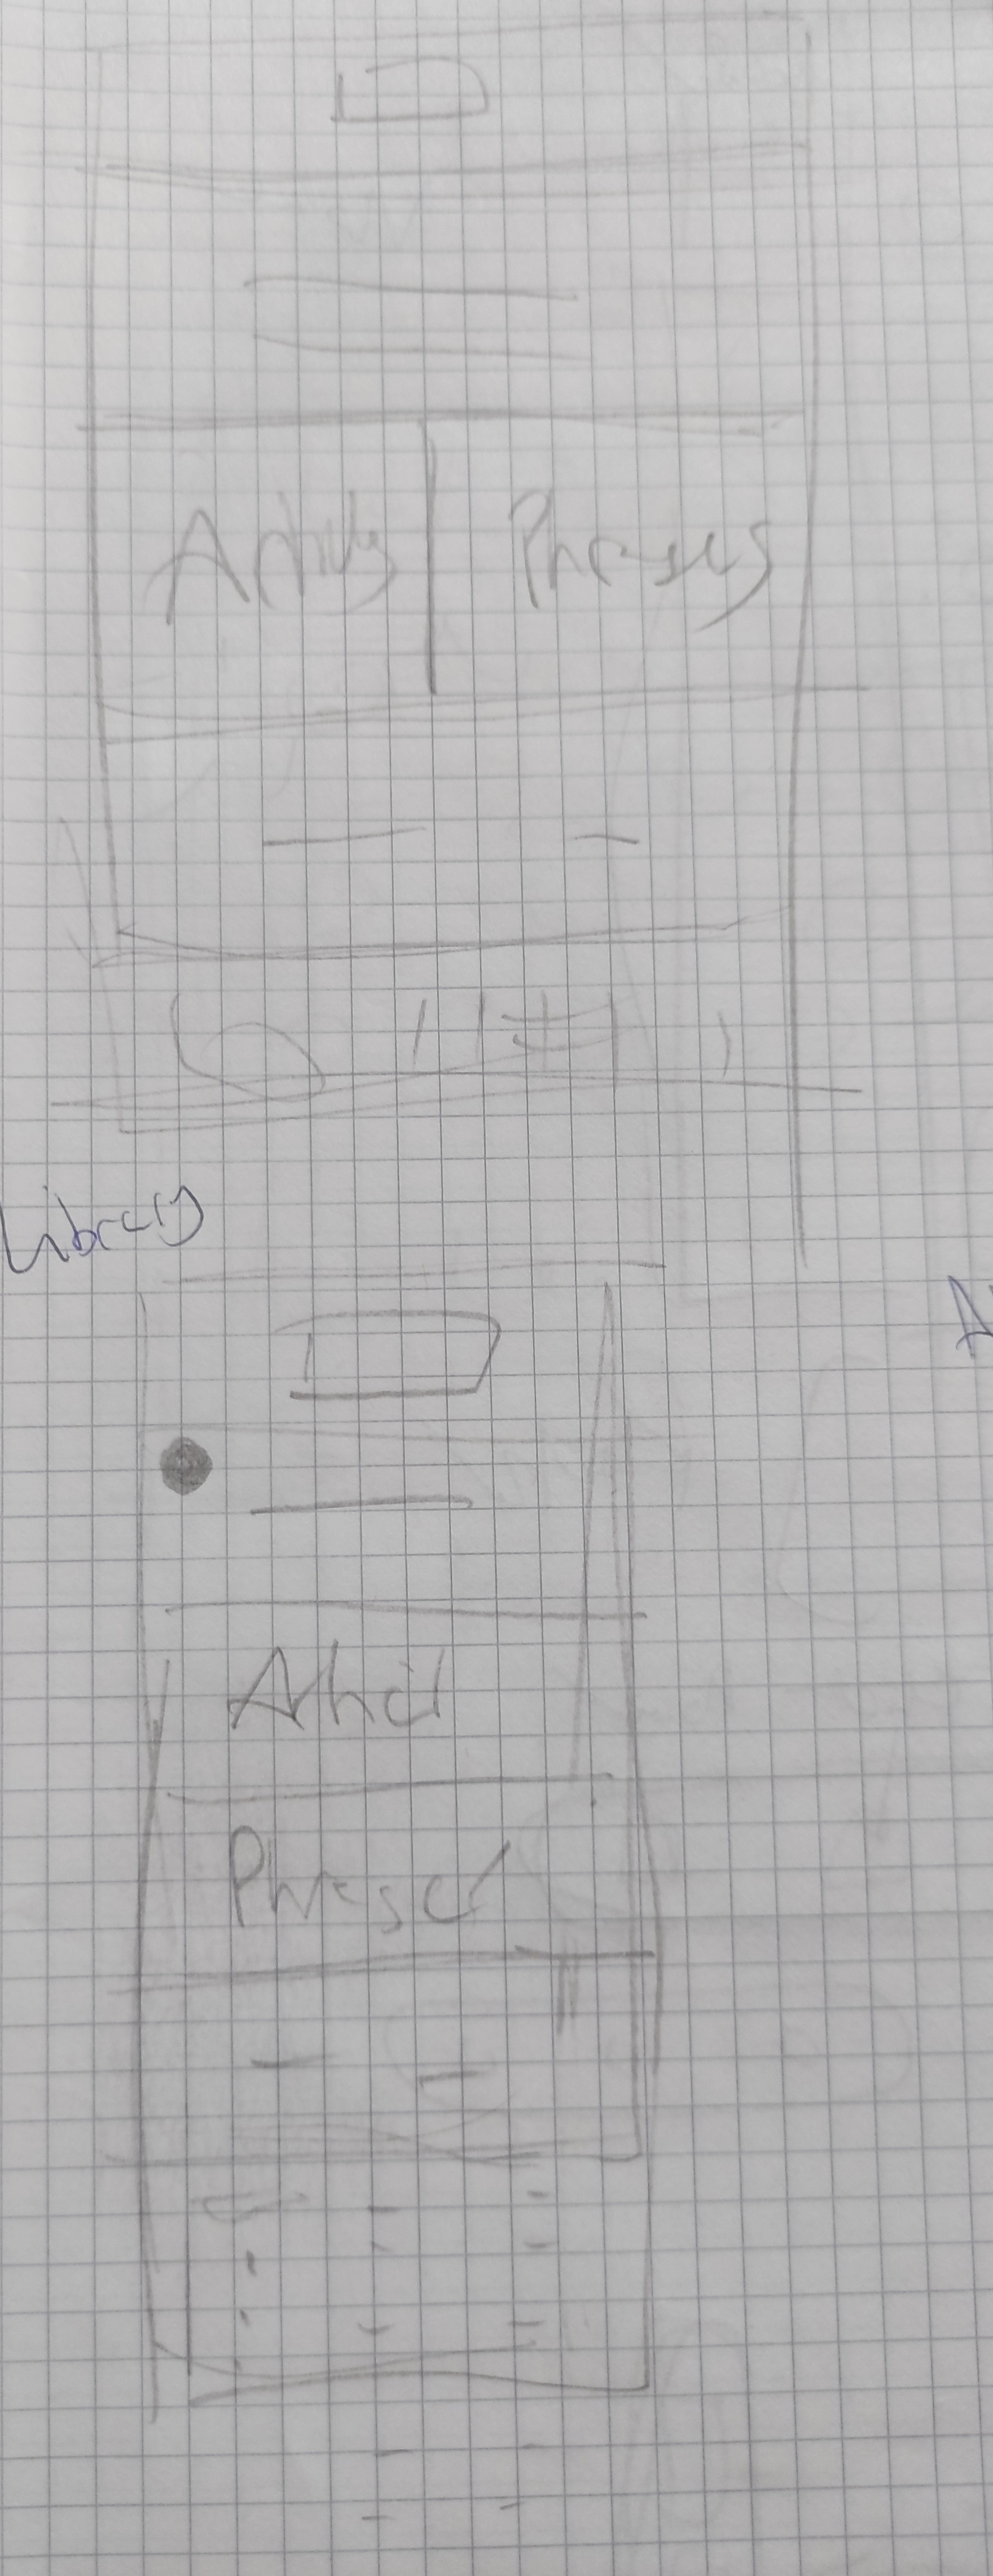 Articles Phrases
Library
Articl
Phrases